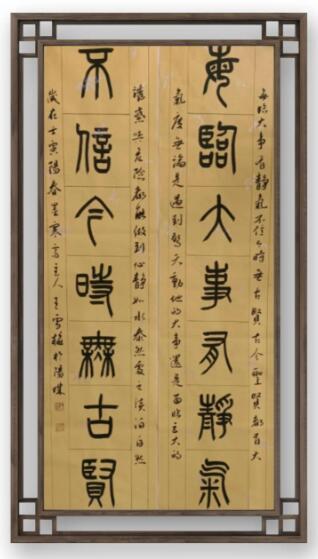 每臨大事有静氣不信今時無古賢古今聖賢都有大
每臨大事有靜氣
氣度無論是遇到驚天動地的大事還是面臨巨大的
危險都能做到心静如水泰然處之淡泊自然
不信今時無古賢
歲在壬寅陽春墨寒齋主人王雪梅於